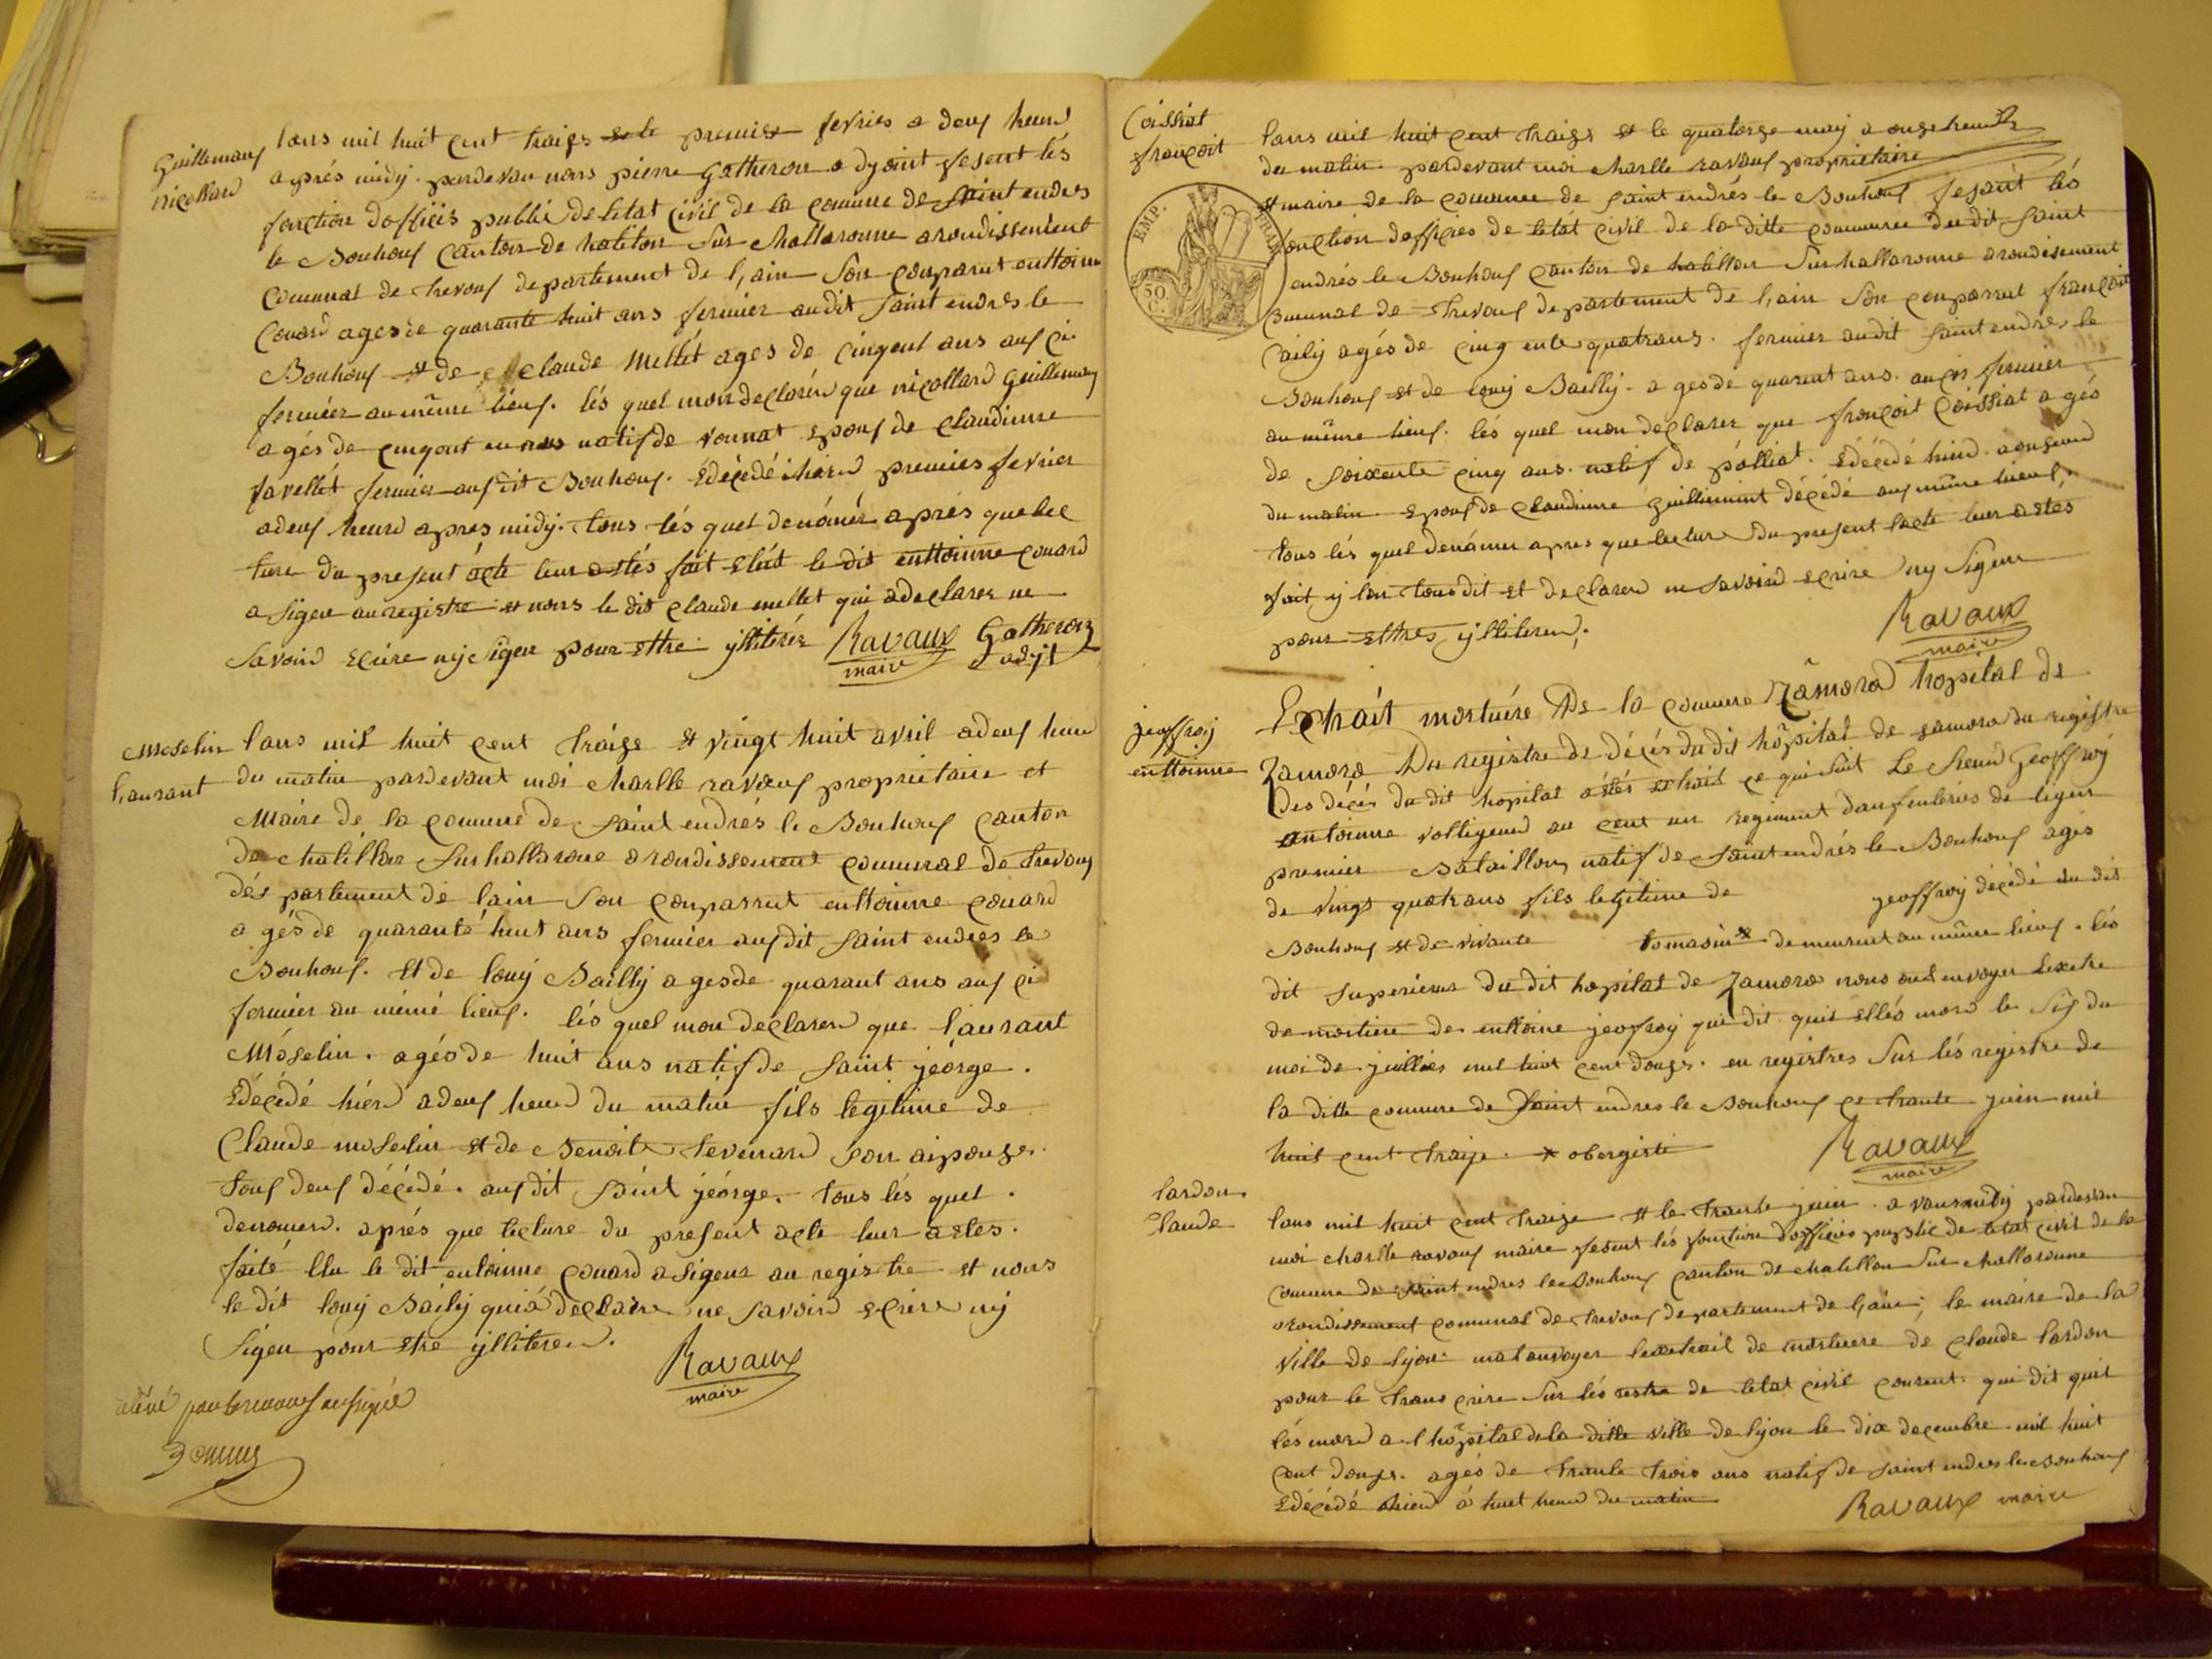 Guillemauf
nicollard
lans mil huit cent traize et le premier fevrier a deuf heurd
aprés midy. pardevan nons pierre Gatheron adyoint fesent lés
fonction dofficiés publié de letat civil de la comune de saint endres
le Bouhouf canton de hatilon sur challaronne arondissement
comunal de trevouf departement de l,ain son conparut enttoinne
Couard agesde quarante huit ans fermier audit saint endrés le
Bouhouf et de claude Mellét ages de cinqent ans auf ci
fermier au même lieuf. lés quel mon declarérd que nicollard guillemauf
agés de cinqont un ans natif de vonnat epouf de claudinne
favellét fermier aufdit Bouhouf. édécédé hierd premier fevrier
adeuf heurd aprés midy. tous lés quel denómér aprés que lec
ture du presfent acte leur astés fait et lut le dit enttoinne couard
a sigeu auregistre et nons le dit claude mellet qui adeclarer ne
savoird ecrire ny sigeu pour ettre yllitérér Ravaux Gatheron
maire adyt
Moselin
l,aurant
lans mil huit cent traize et vingt huit avril adeuf heurd
du matin pardevant moi charlle ravauf proprietaire et
Maire de la comune de saint endrés le Bouhouf canton
de chatillon surhallarone arondissement comunal de trevouf
dés partement de lain son conparrut enttoinne couard
agés de quaranté huit ans fermier aufdit saint endrés le
Bouhouf. et de louy Bailly agesde quarant ans auf ci
fermier au mémé lieuf. lés quel mon declarerd que l'aurant
Móselin. agés de huit ans natif de saint jéorge.
Edécédé hiérd adeuf heurd du matin fils legitime de
Claude moselin et de Benoite tevenard son aipouze.
touf deuf décédé. aufdit saint jéorge. tous lés quel.
denomerd. aprés que lecture du presfent acte leur astes.
faité llu le dit entoinne couard asigeur au registre et nons
le dit louy Baily quiá déclaire ne savoird ecrire ny
sigeu pour etre ylliterérd.
Ravaux
maire
Coissiat
françoit
EMP. FRAN
50. C.
lans mil huit cent traize et le quatorze may a onze heurd
du matin pardevant moi charlle ravauf proprietaire
et maire de la comunee de saint endrés le Bouhouf fesant lés
fonction dofficiés de letát civil de la ditte comunee dudit saint
endrés le Bouhouf canton de hatillon surhallaronne arondisement
comunal de trevouf departement de l,ain son conparrut françoit
Caily agés de cinq ente quatrans. fermier audit saint endrés le
Bouhouf et de louy Bailly. a gesde quarent ans. auci fermier
au même lieuf. lés quel mon declarer que françoit Coissiat agés
de soixente cinq ans. natif de pólliat. Edécédé hierd. aonzeurd
du matin epouf de claudinne guillemint décédé auf même lieuf.
tous lés quel denámer apres que lecture du presfent lacte leur astes
fait y lon tous dit et declarerd ne savoird ecrire ny sigeur
pour ettres ylliterérd.
Ravaux
maire
jeoffroy
enttoinne
Extrait mortuére De la comune Zâmora hopital de
Zamora Du registre de décés du dit hôpital de zamora du registre
Des décés du dit hopital a étés etrait ce qui suit Le sieurd Geoffroy
antoinne voltigeurd au cent un regiment danfenterie de ligeu
premier Bataillon natif de saint endrés le Bouhouf agés
de vingt quatrans fils legitime de geoffroy décédé du dit
Bouhouf et de vivante tomasin * demeurent au même lieuf. lés
dit superieur du dit hopital de Zamora nons ont envoyer lextre
de mortiére de enttoine jeofroy qui dit quil ellés mord le sis du
moi de juillier mil huit cent douze. en registrer sur lés registre de
la ditte comune de saint endres le Bouhouf ce trante juin mil
huit cent traize. * obergiste
Ravaux
maire
lardon
Claude
lans mil huit cent traize et le trante juin avanmidy pardevan
moi charlle ravauf maire fesent lés fonction dofficiés puplic de letat civil de la
comune de saint endres le Bouhouf canton de chatillon sur challaronne
arondissement comunal de trevouf departement de l,ain; le maire de la
ville de lyon matanvoyer lextrait de mortuere de claude lardon
pour le trans crire sur lés restre de letat civil courant. qui dit quil
lés mord a lhôpital de la ditte ville de lyon le dix decembre mil huit
cent douze. agés de trante trois ans natif de saint endres le Bouhouf
Edécédé hierd á huit heurd du matin
Ravaux maire